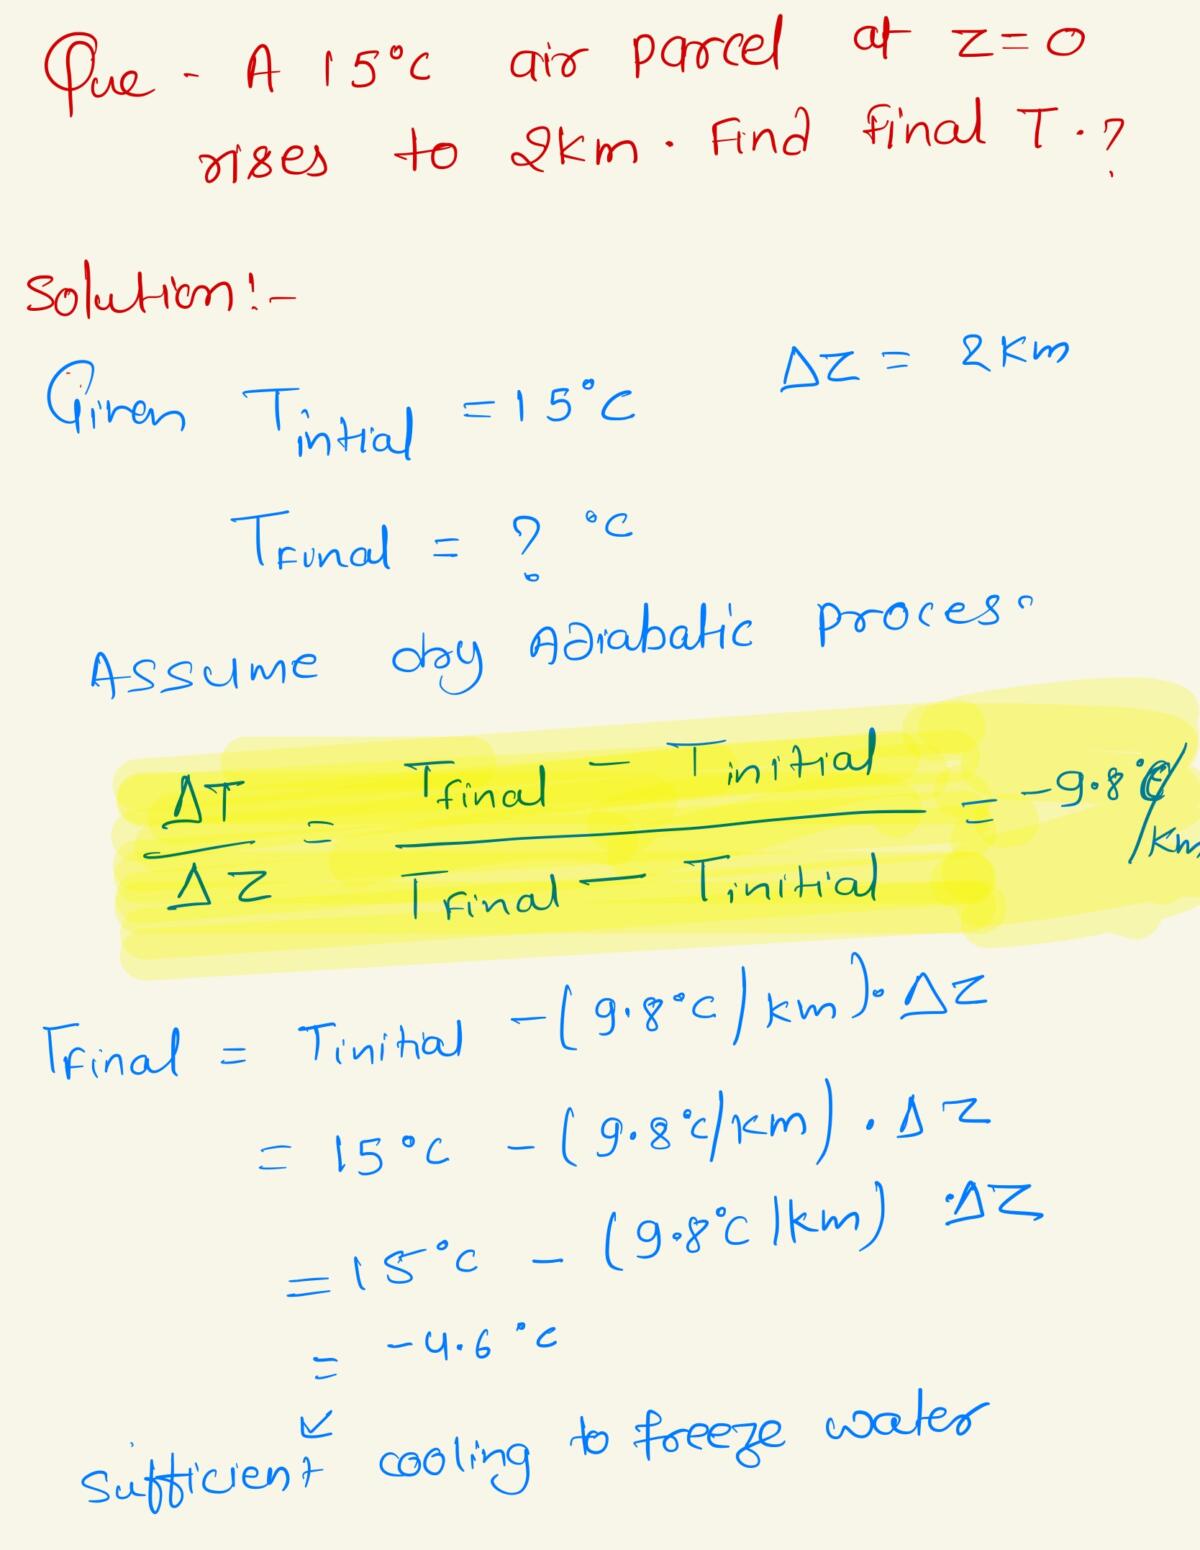 Que - A 15°C air parcel at z=0
rises to 2km. Find final T.?
Solution:-
Given T intial = 15°C ΔZ = 2Km
T Final = ? °C
Assume dry Adiabatic proces.
ΔT/ΔZ = (T final - T initial)/(T Final - T initial) = -9.8°C/Km
T Final = T initial - (9.8°C/km). ΔZ
= 15°C - (9.8°C/km). ΔZ
= 15°C - (9.8°C/km) .ΔZ
= -4.6 °C
↙
Sufficient cooling to freeze water